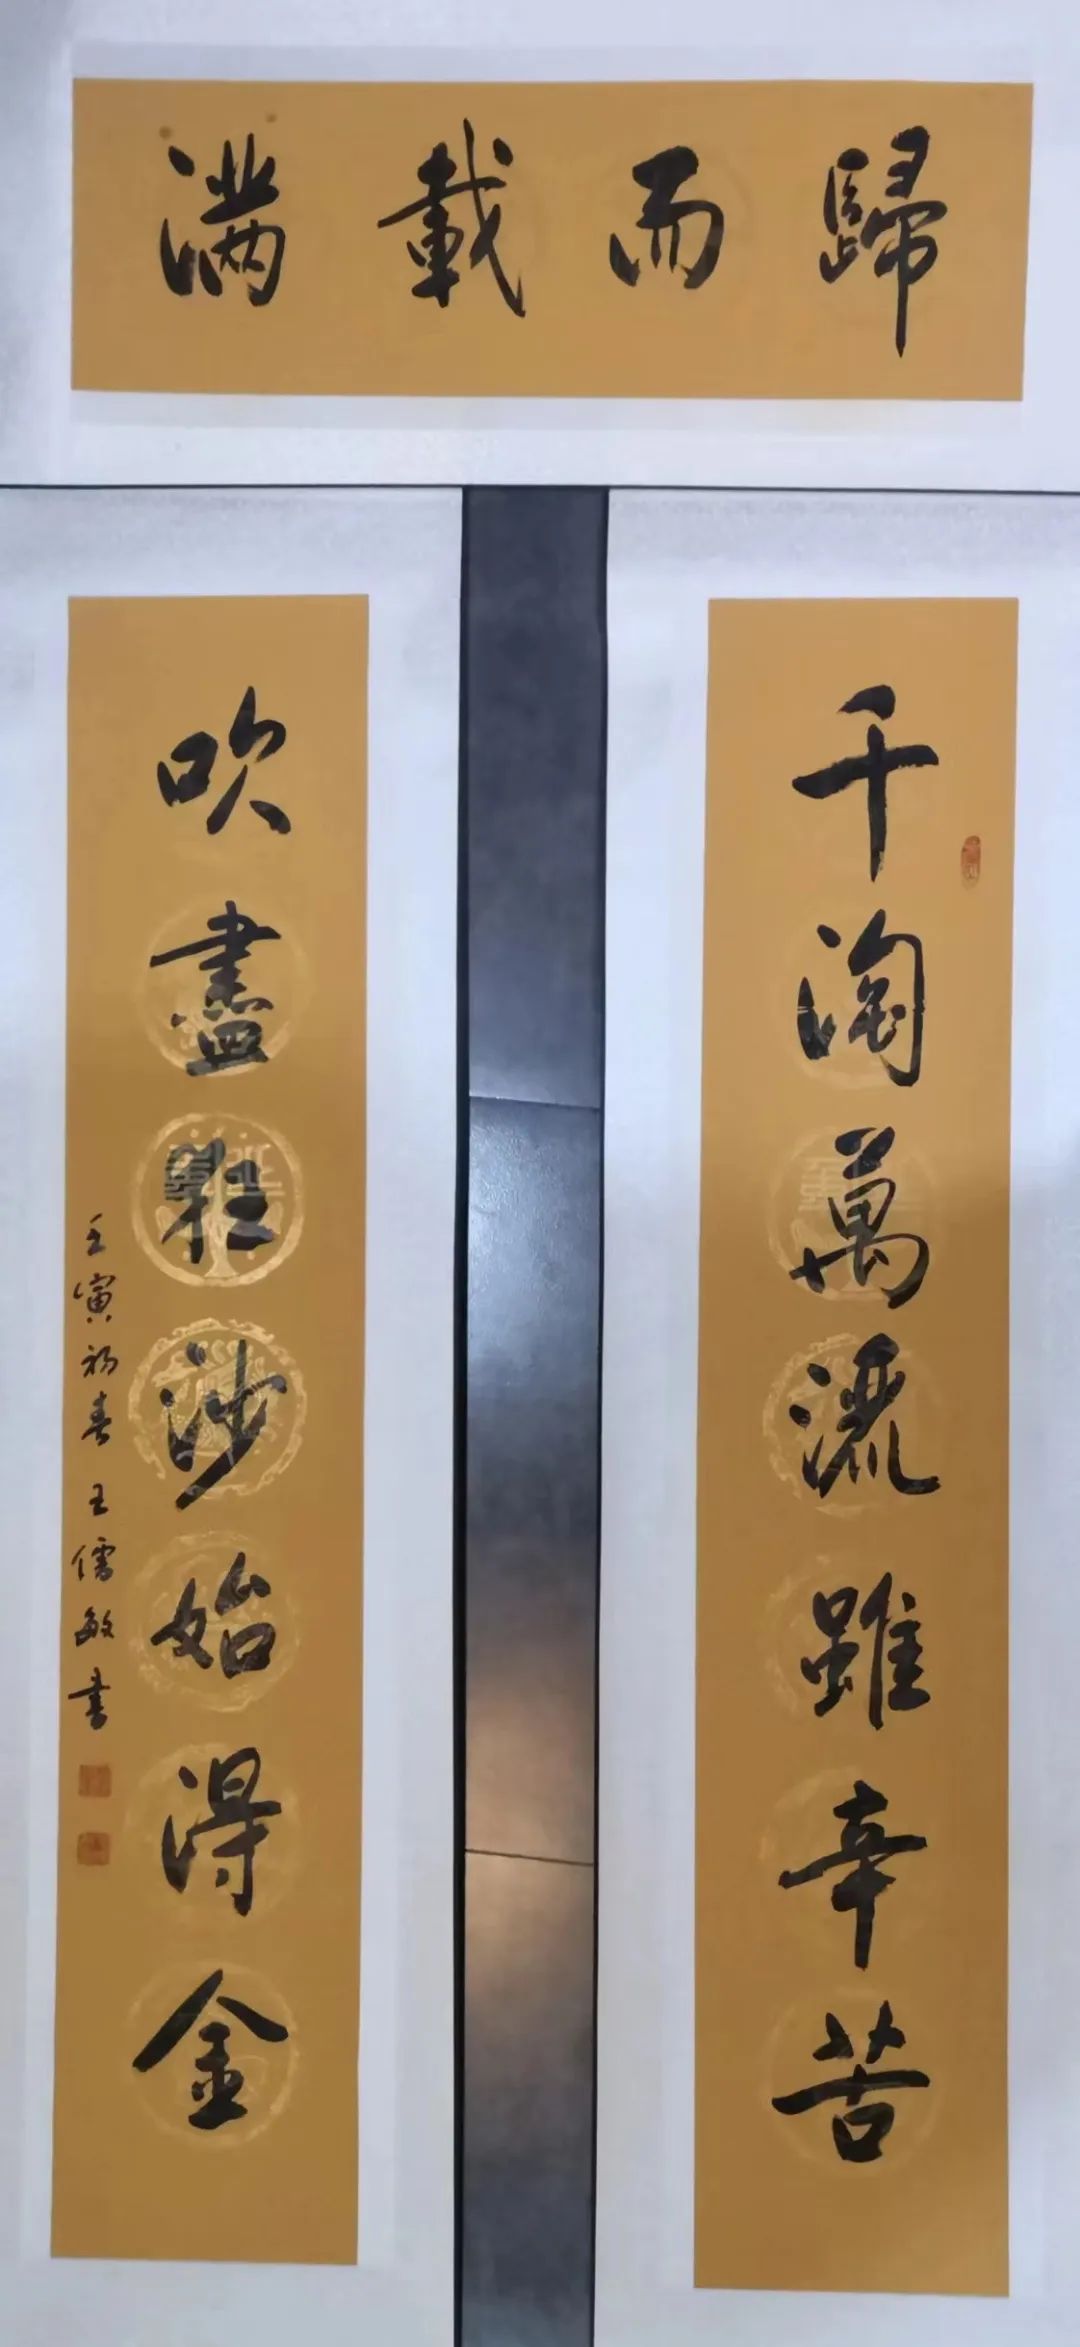 满載而歸
千淘萬漉雖辛苦
吹盡狂沙始得金
壬寅初春王儒敏書